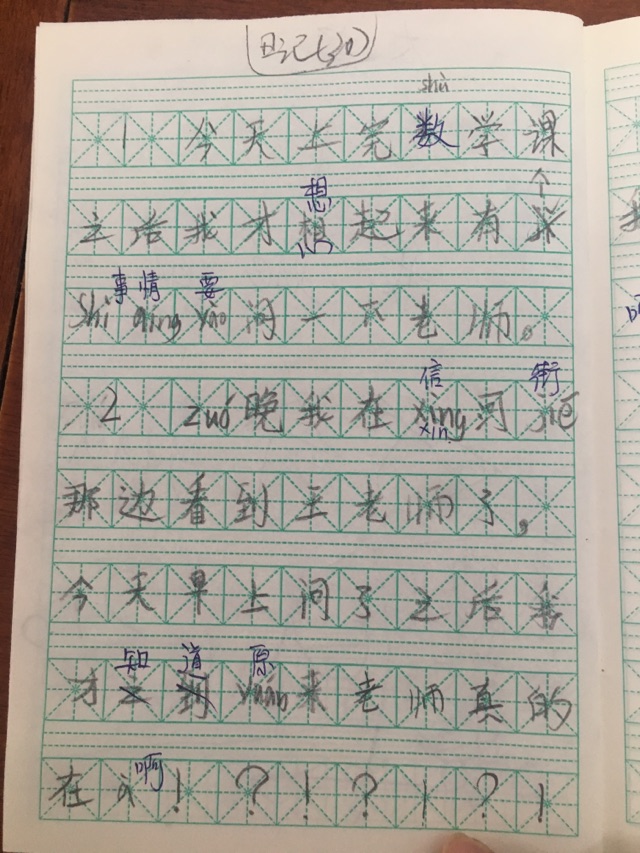 日记七30
shù
1 今天上完数学课
想
之后我才想起来有
事情 要
shì qíng yào 问一下老师。
信 街
2 zuó晚我在xìng河jiē
xìn
那边看到王老师了,
今天早上问了之后我
知道 原
才之到yuán来老师真的
啊
在à!?!?!?!